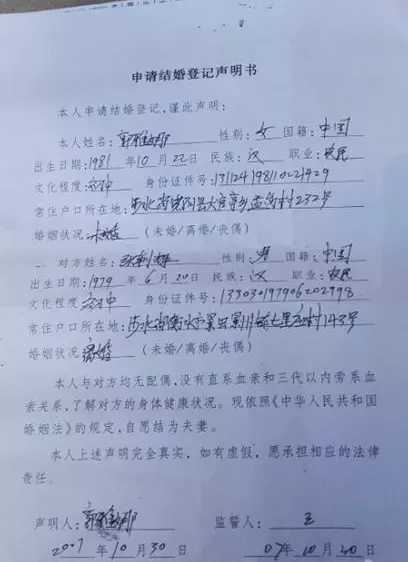 申请结婚登记声明书
本人申请结婚登记，谨此声明：
本人姓名： 性别：女 国籍：中国
出生日期：1981 年 10 月 22 日 民族：汉 职业：农民
文化程度 初中 身份证件号：
常住户口所在地：河北省 232号
婚姻状况 未婚 （未婚/离婚/丧偶）
二、对方姓名： 性别：男 国籍：中国
出生日期：1979 年 6 月 20 日 民族：汉 职业：农民
文化程度 初中 身份证件号：133030197906202998
常住户口所在地：河北省衡水市 村143号
婚姻状况 离婚 （未婚/离婚/丧偶）
本人与对方均无配偶，没有直系血亲和三代以内旁系血
亲关系，了解对方的身体健康状况。现依照《中华人民共和国
婚姻法》的规定，自愿结为夫妻。
本人上述声明完全真实，如有虚假，愿承担相应的法律
责任。
声明人： 监誓人：王
2007 年 10 月 30 日 07年 10 月 30 日